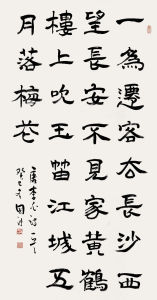 一為遷客去長沙西
望長安不見家黃鶴
樓上吹玉笛江城五
月落梅花
唐李白詩一首